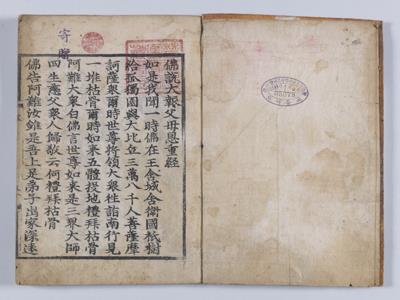 寄贈
佛說大報父母恩重経
如是我聞一時佛在王舍城舍衛國祇樹
給孤獨園與大比丘三萬八千人菩薩摩
訶薩衆爾時世尊将領大衆徃詣南行見
一堆枯骨爾時如來五體投地禮拜枯骨
阿難大衆白佛言世尊如來是三界大師
四生慈父衆人歸敬云何禮拜枯骨
佛告阿難汝雖是吾上足弟子出家深遠